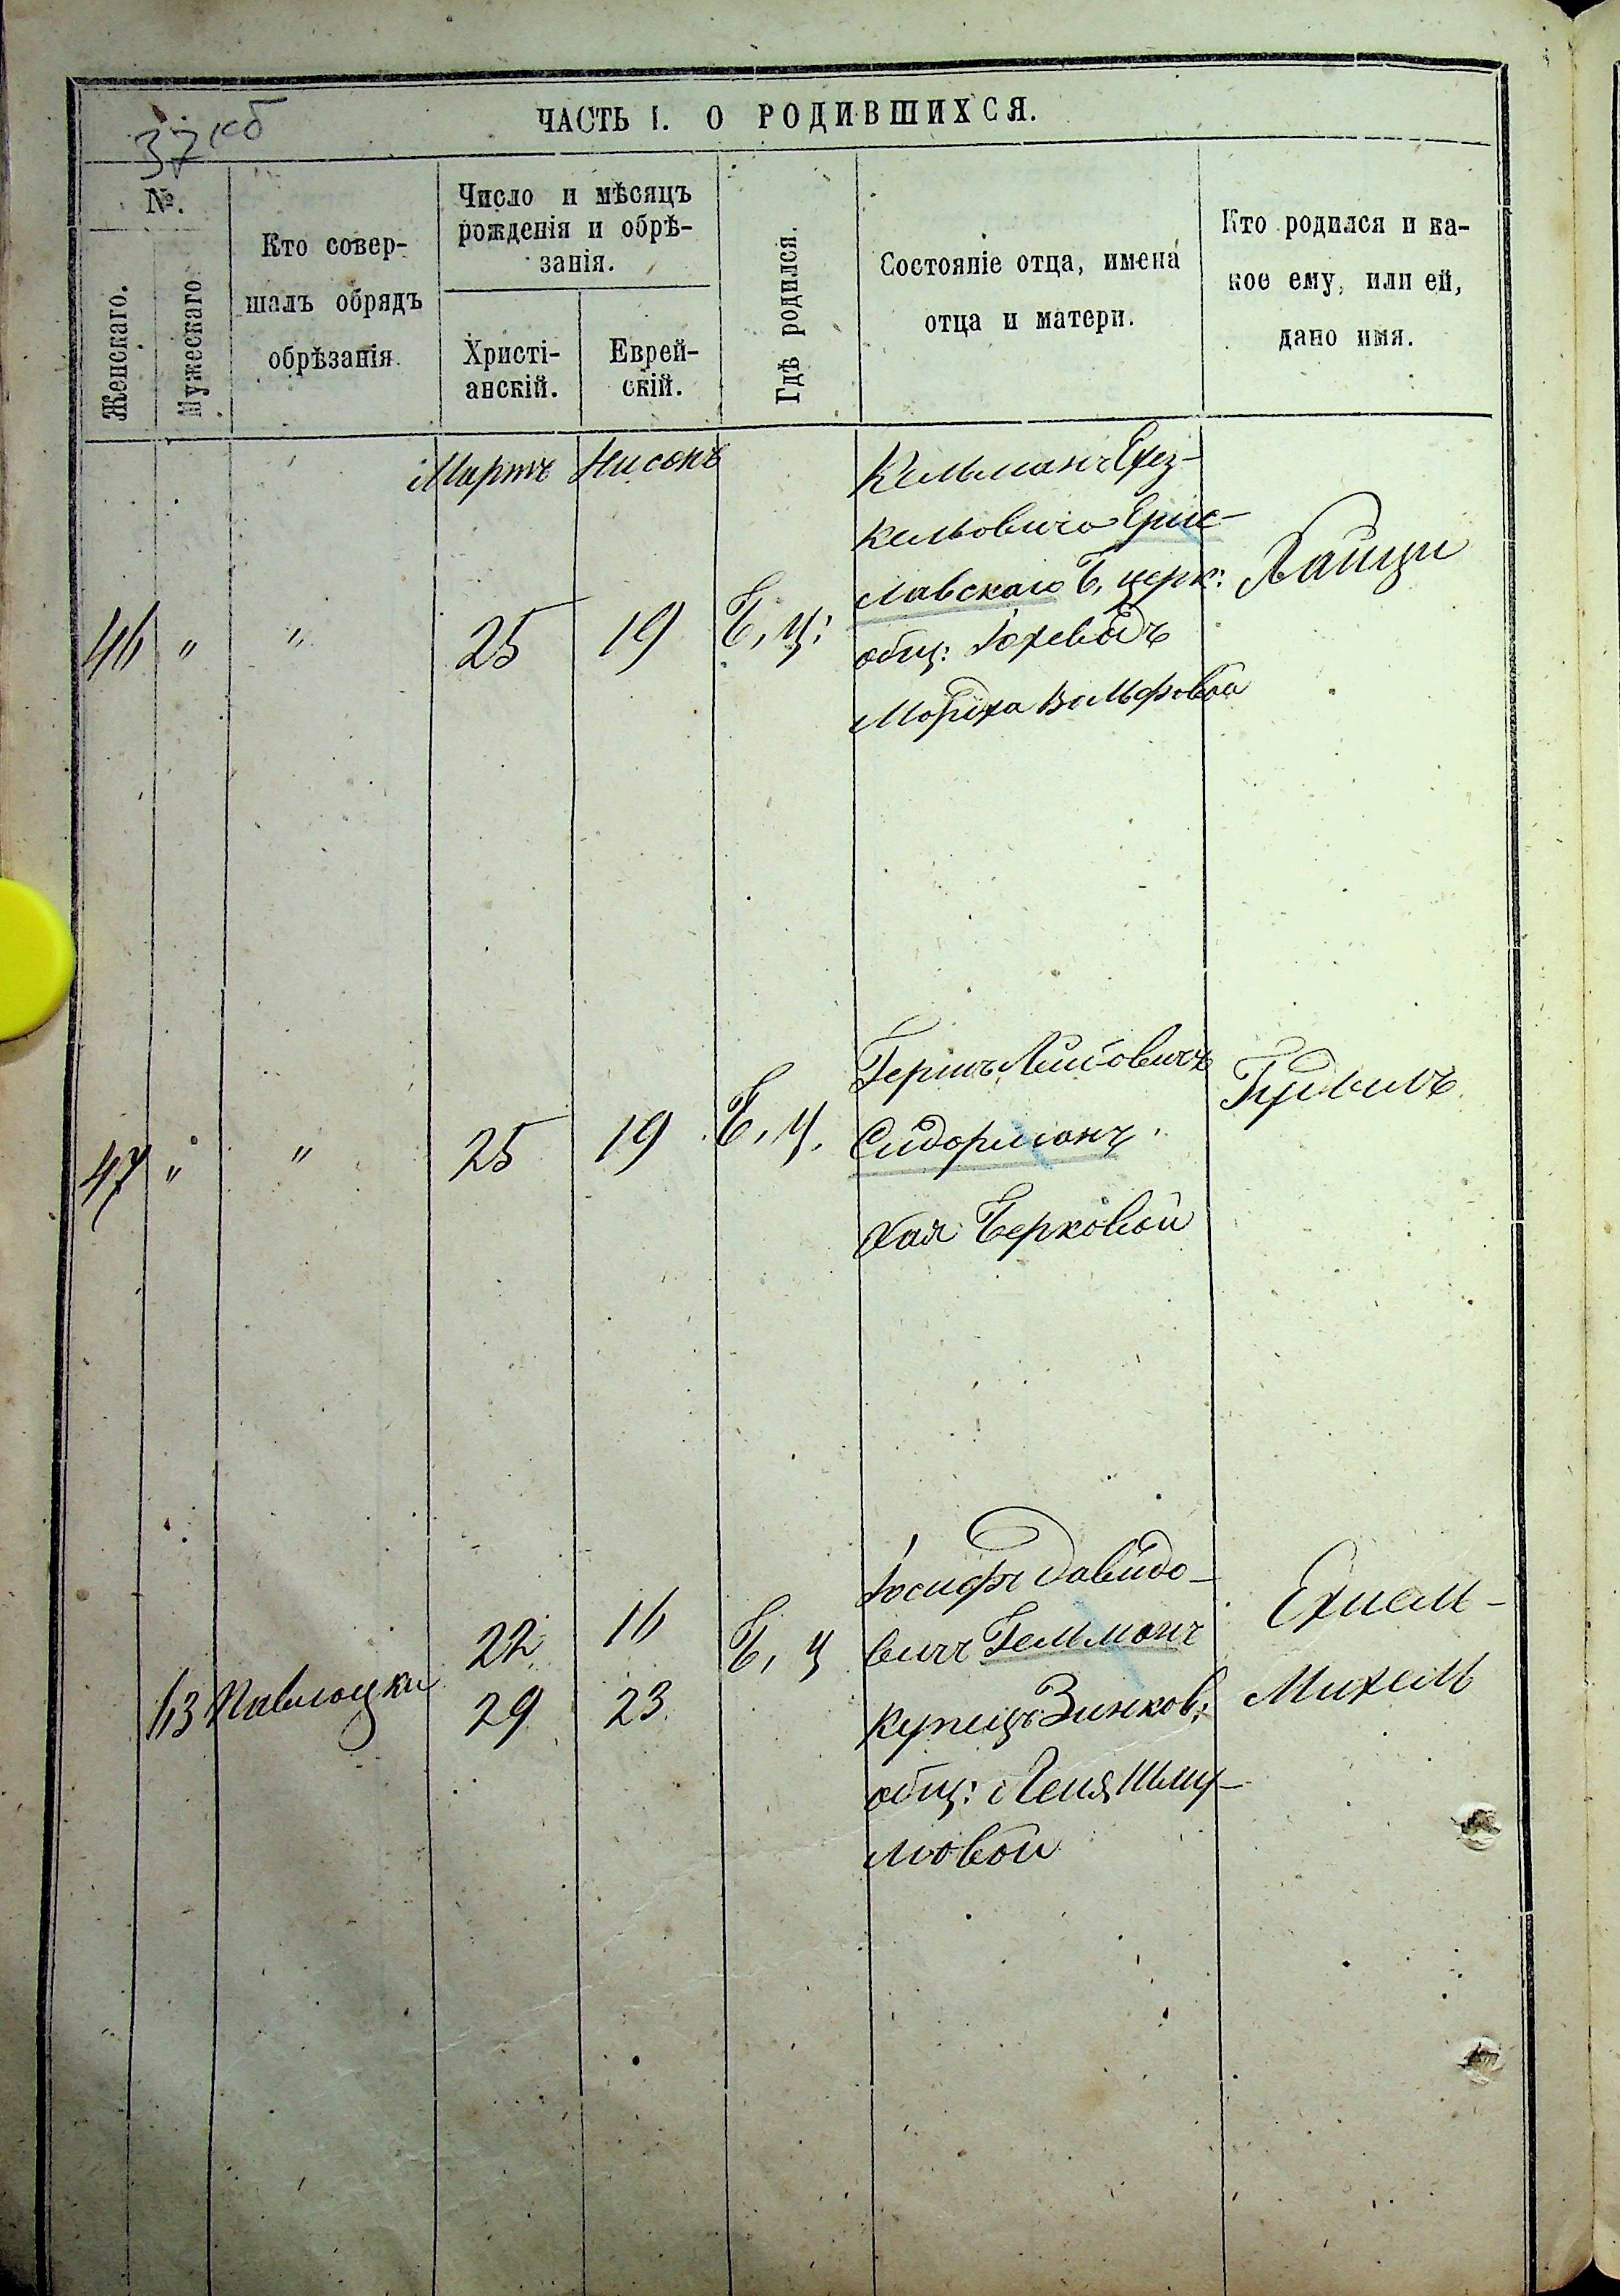 ЧАСТЬ I. О РОДИВШИХСЯ.
37 об
№.
Женскаго.
Мужескаго
Кто совер-
шалъ обрядъ
обрѣзанія.
Число и мѣсяцъ
рожденія и обрѣ-
занія.
Христі-
анскій.
Еврей-
скій.
Гдѣ родился.
Состояніе отца, имена
отца и матери.
Кто родился и ка-
кое ему, или ей,
дано имя.
Мартъ Нисонъ
46 " " 25 19 Б, ц:
Кельманъ Ехез-
кельовича
славскаго Б, церк:
общ: Іохеведъ
Мордха Вольфовой
47 " " 25 19 Б, ц.
Гершъ Лейбовичъ
Сидорманъ
Хая Берковой
13
22 16 Б, ц
29 23
Іосифъ Давидо-
вичъ Гельманъ
Купецъ Зинков:
общ: Леия Шму-
ловой
Ехиель-
Михель